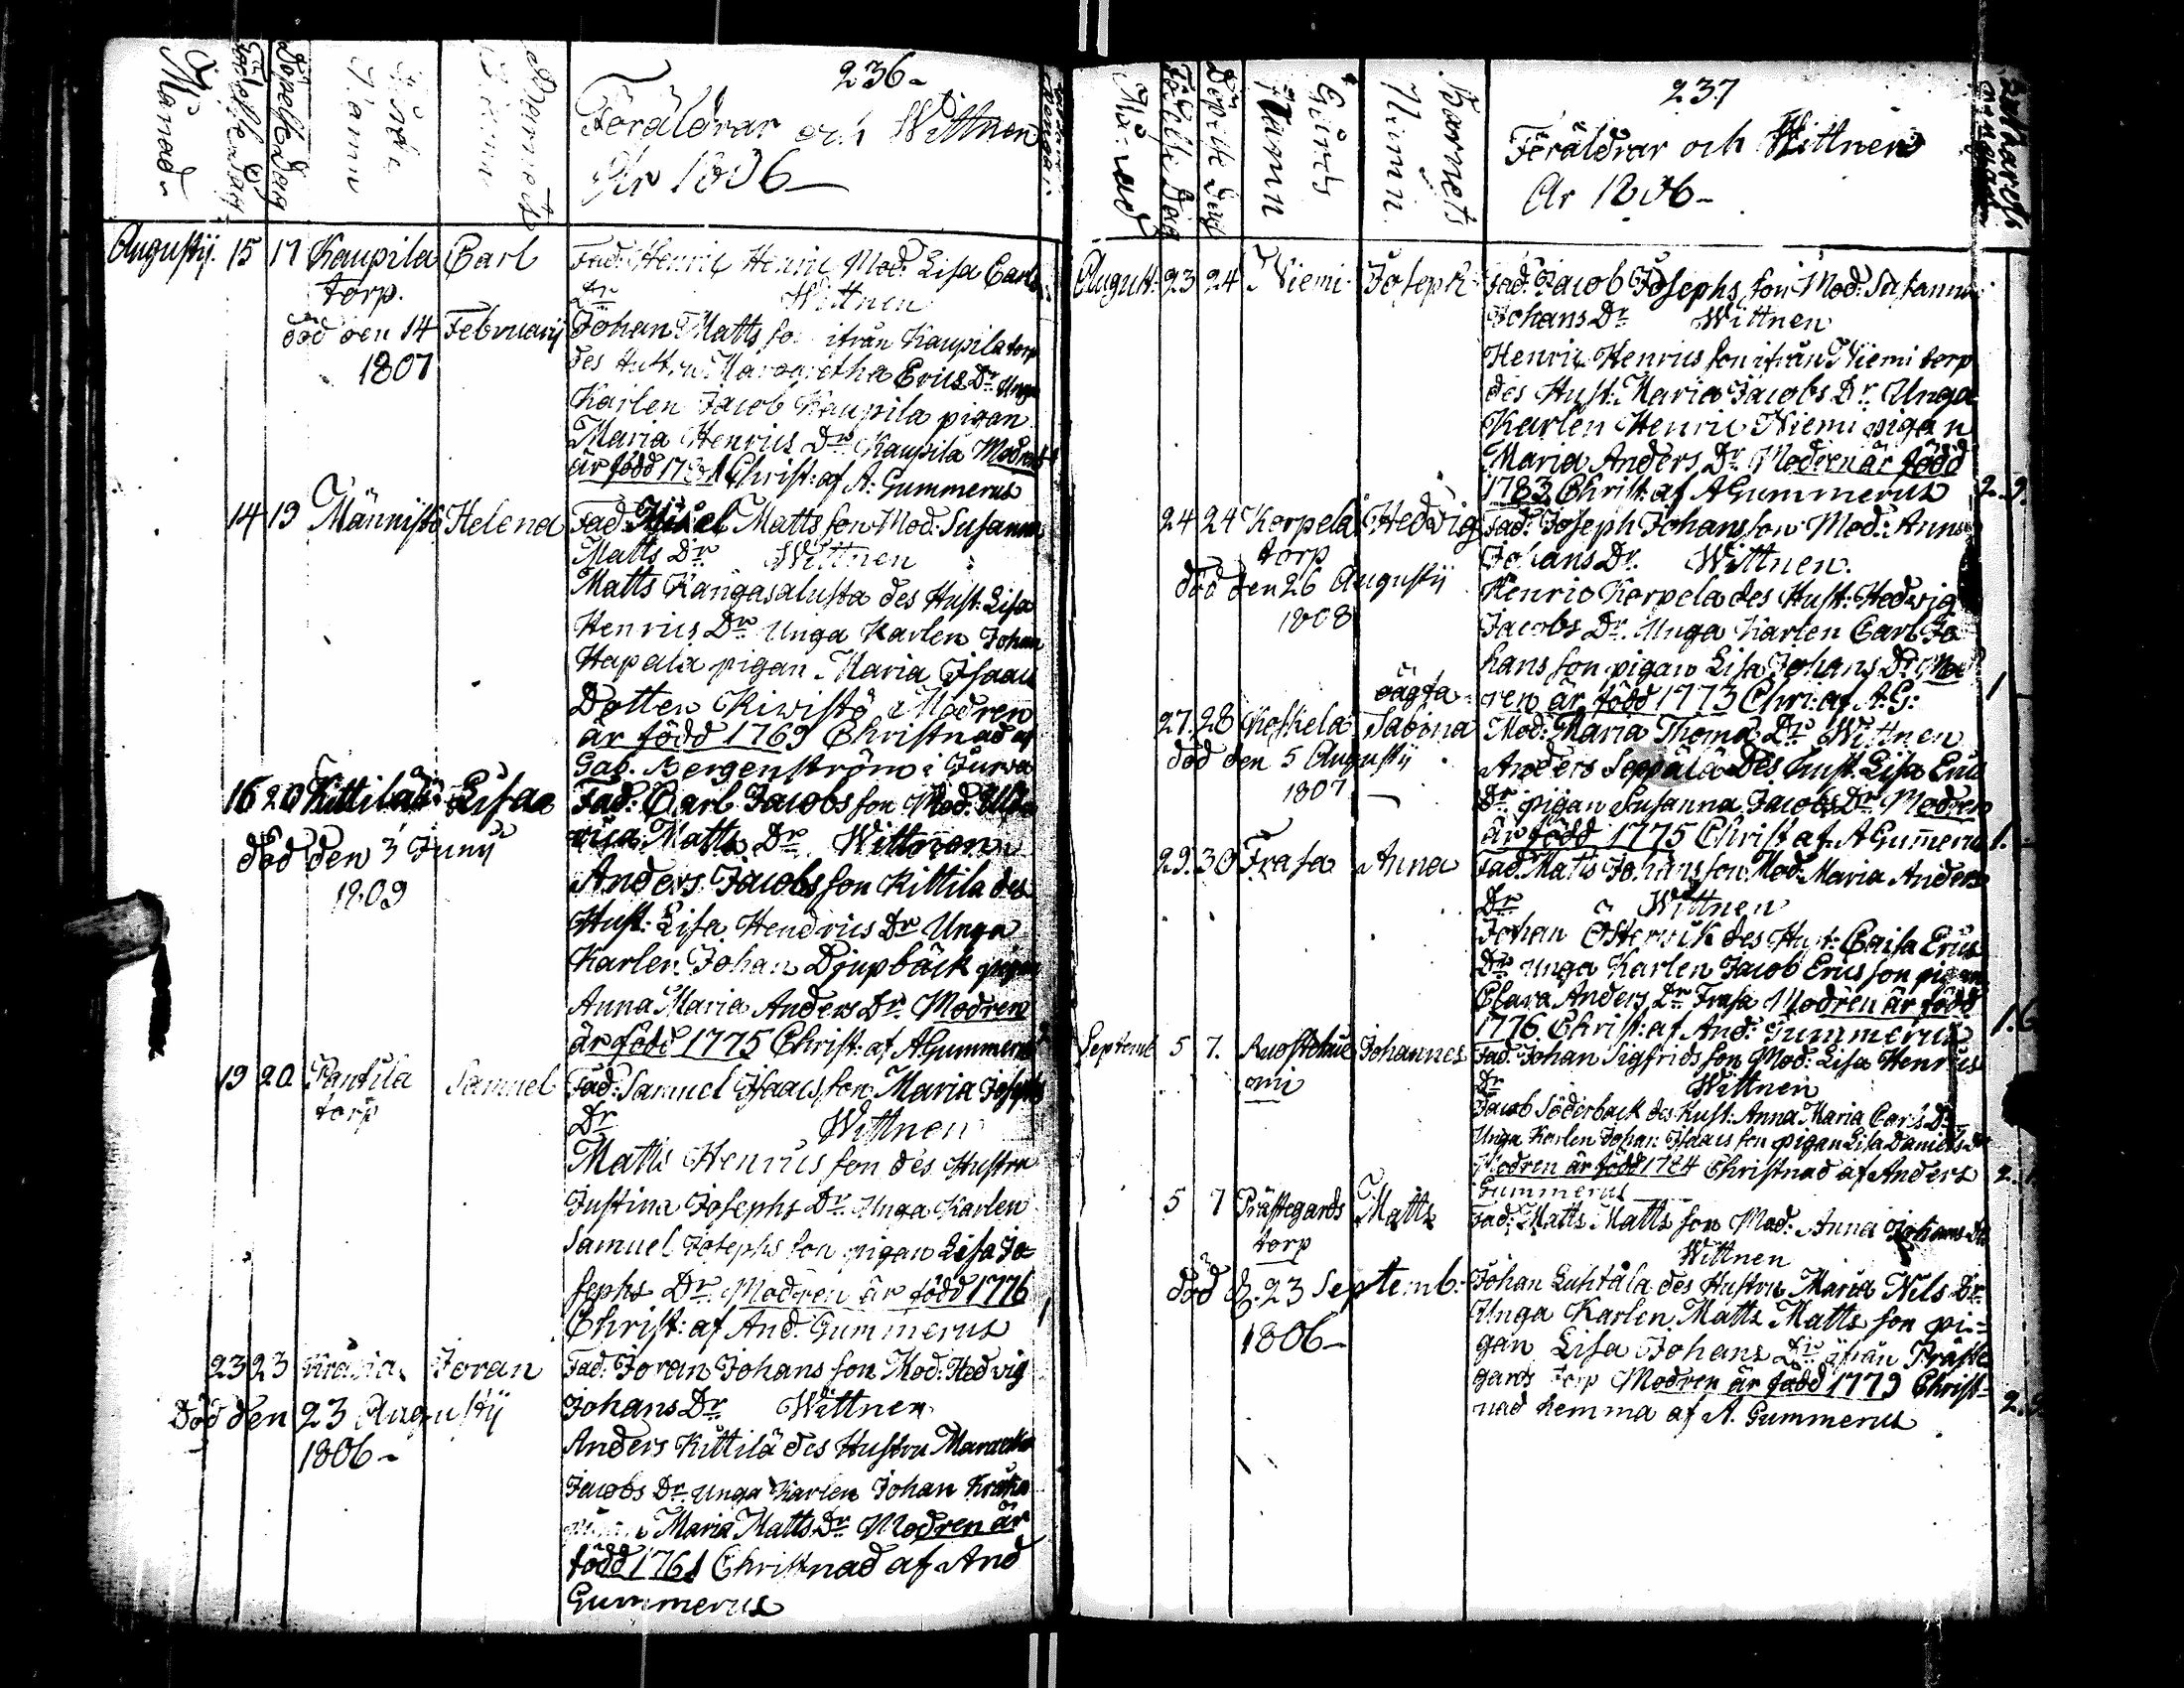 236-
Månad
Födelse Dag
Döpelse Dag
Gårds Namn
Barnets Namn
Föräldrar och Wittnen
År 1806-
Augustij. 15 17 Kaupila torp. Carl
död den 14 Februarij
1807
Fad: Henric Henric Mod: Lisa Carls
Dr Wittnen
Johan Matts son ifrån Kaupila torp
des Hustru Margaretha Erics Dr Unga
Karlen Jacob Kaupila pigan
Maria Henrics Dr Kaupila Modren
är född 1781 Christ: af A: Gummerus
14 19 Männistö Helena
Fad: Mikel Matts son Mod: Susanna
Matts Dr Wittnen
Matts Kangasalusta des Hust: Lisa
Henrics Dr Unga Karlen Johan
Hapala pigan Maria Isaacs
Dotter Kiwistö Modren
är född 1769 Christnad af
Gab. Bergenström i Jurva
16 20 Kittilä Lisa
död den 3 Junij
1809
Fad: Carl Jacobs son Mod: Ulrica
Matts Dr Wittnen
Anders Jacobs son Kittila des
Hust: Lisa Hendrics Dr Unga
Karlen Johan Djupbäck pigan
Anna Maria Anders Dr Modren
är född 1775 Christ: af A Gummerus
19 20 Pantila torp Samuel
Fad: Samuel Isaacs son Maria Josephs
Dr Wittnen
Matts Henrics son des Hustru
Justina Josephs Dr Unga Karlen
Samuel Josephs son pigan Lisa Jo-
sephs Dr Modren är född 1776
Christ: af And. Gummerus
23 23 Kråka Joran
Död den 23 Augustij
1806-
Fad: Joran Johans son Mod: Hedvig
Johans Dr Wittnen
Anders Kittilä des Hustru Margeta
Jacobs Dr Unga Karlen Johan Kråka
pigan Maria Matts Dr Modren är
född 1761 Christnad af And
Gummerus
237
Månad
Födelse Dag
Döpelse Dag
Gårds Namn
Barnets Namn
Föräldrar och Wittnen
Ar 1806-
August: 23 24 Niemi Joseph
Fad: Jacob Josephs son Mod: Susanna
Johans Dr Wittnen
Henric Henrics son ifrån Niemi torp
des Hust: Maria Jacobs Dr Unga
Karlen Henric Niemi pigan
Maria Anders Dr Modren är född
1783 Christ: af A Gummerus 2. 9.
24 24 Korpela torp Hedvig
död den 26 Augustij
1808
Fad: Joseph Johans son Mod: Anna
Johans Dr Wittnen.
Henric Korpela des Hust: Hedvig
Jacobs Dr. Unga Karlen Carl Jo
hans son pigan Lisa Johans Dr Mod
ren är född 1773 Chri: af A: G:
oägta
27. 28 Koskela Sabina
död den 5 Augustij
1807
Mod: Maria Thoma Dr Wittnen
Anders Seppälä Des hust. Lisa Erics
Dr pigan Susanna Jacobs Dr Modren
är född 1775 Christ af A Gummerus 1.
29. 30 Frasa Anna
Fad: Matts Johans son Mod: Maria Anders
Dr Wittnen
Johan Österwik des Hust: Caisa Erics
Dr Unga Karlen Jacob Erics son pigan
Clara Anders Dr Frasa Modren är född
1776 Christ: af And: Gummerus 1. 6
Septemb 5 7. Johannes
Fad: Johan Sigfrids son Mod: Lisa Henrics
Dr Wittnen
Jacob Söderback des Hust: Anna Maria Carls Dr
Unga Karlen Johan Isaacs son pigan Lisa Daniels Dr
Modren är född 1784 Christnad af Anders
Gummerus
5 7 Prästegards torp Matts
död d. 23 Septemb:
1806-
Fad: Matts Matts son Mod: Anna Johans Dr
Wittnen
Johan Luhtala des Hustru Maria Nils Dr
Unga Karlen Matts Matts son pi-
gan Lisa Johans Dr ifrån Präste
gards torp Modren är född 1779 Christ-
nad hemma af A. Gummerus